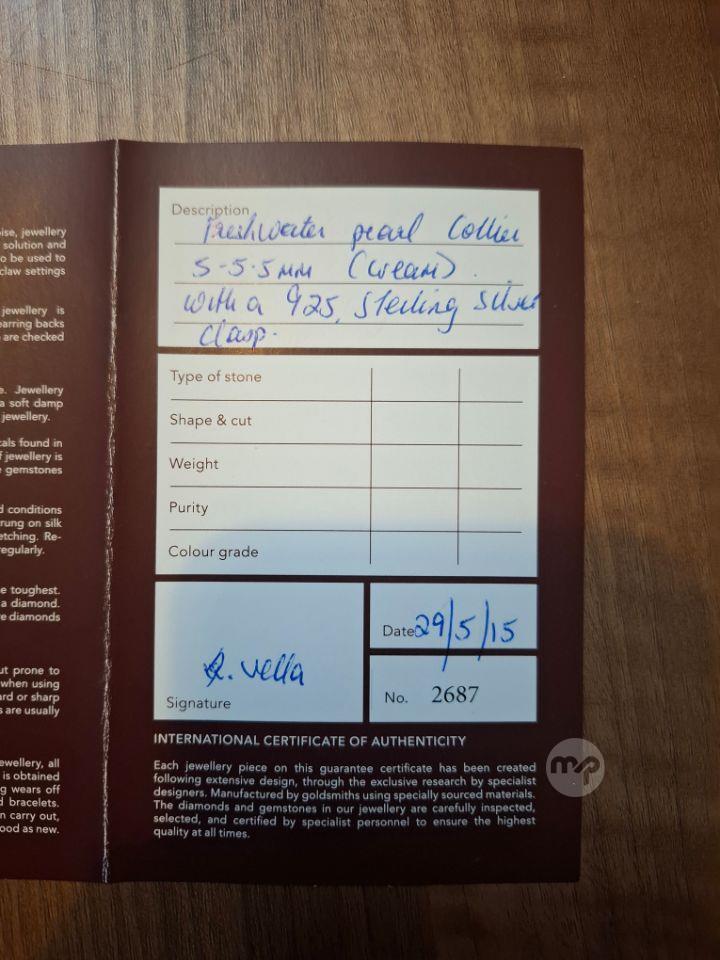 ise, jewellery
solution and
o be used to
claw settings
jewellery is
earring backs
are checked
e. Jewellery
a soft damp
jewellery.
als found in
f jewellery is
gemstones
d conditions
rung on silk
etching. Re-
egularly.
e toughest.
a diamond.
e diamonds
ut prone to
when using
ard or sharp
s are usually
ewellery, all
is obtained
g wears off
d bracelets.
n carry out,
ood as new.
Description
Freshwater pearl Collier
5-5.5mm (cream).
with a 925. Sterling silver
clasp.
Type of stone
Shape & cut
Weight
Purity
Colour grade
Vella
Signature
Date 29/5/15
No. 2687
INTERNATIONAL CERTIFICATE OF AUTHENTICITY
Each jewellery piece on this guarantee certificate has been created
following extensive design, through the exclusive research by specialist
designers. Manufactured by goldsmiths using specially sourced materials.
The diamonds and gemstones in our jewellery are carefully inspected,
selected, and certified by specialist personnel to ensure the highest
quality at all times.
mp